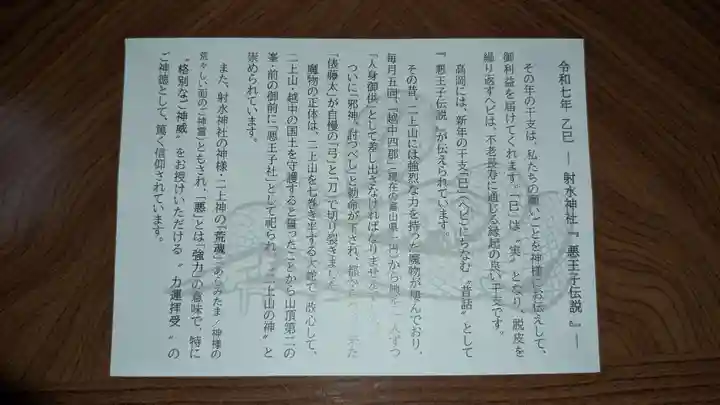 令和七年 乙巳 ― 射水神社『悪王子伝説』―
その年の干支は、私たちの願いごとを神様にお伝えして、
御利益を届けてくれます。「巳」は〝実〟となり、脱皮を
繰り返すヘビは、不老長寿に通じる縁起の良い干支です。
高岡には、新年の干支「巳」（ヘビ）にちなむ〝昔話〟として
『悪王子伝説』が伝えられています。
その昔、二上山には強烈な力を持った魔物が棲んでおり、
毎月五回、『越中四郡』（現在の富山県 から 人ずつ
「人身御供」として差し出さなければなりませ
ついに「邪神、討つべし」と勅命が下され、都から 来た
「俵藤太」が自慢の「弓」と「刀」で切り裂きまし
魔物の正体は、二上山を七巻き半する大蛇で、改心して、
二上山・越中の国土を守護すると誓ったことから山頂第二の
峯・前の御前に『悪王子社』として祀られ、〝二上山の神〟と
崇められています。
また、射水神社の神様・二上神の『荒魂』（あらみたま／神様の
荒々しい面のご神霊）ともされ、「悪」とは「強力」の意味で、特に
〝格別なご神威〟をお授けいただける〝力運拝受〟の
ご神徳として、篤く信仰されています。